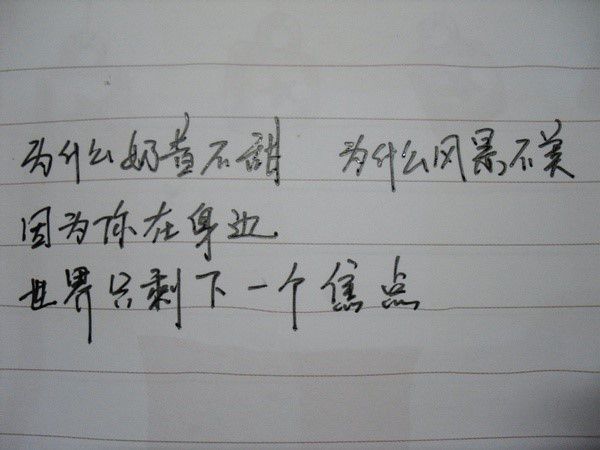 为什么奶查不甜 为什么风景不美
因为你在身边
世界只剩下一个焦点